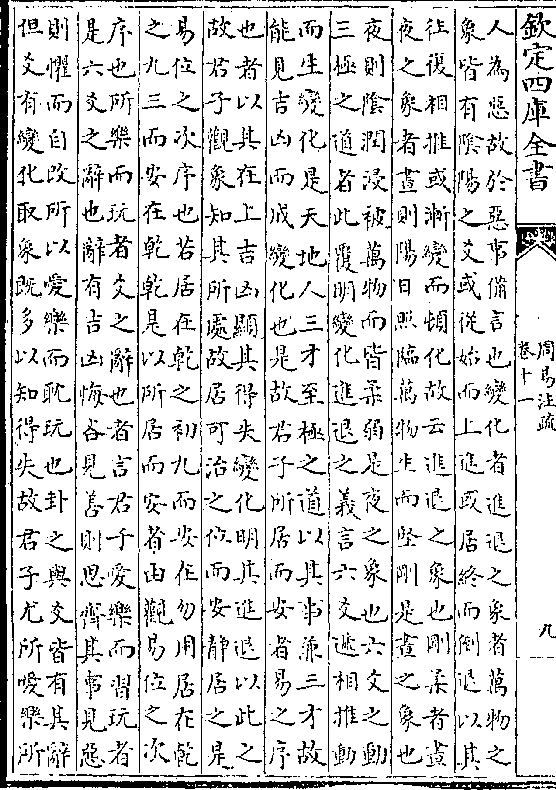 欽定四庫全書
周易注疏
卷十一
九
人為惡故於惡事備言也變化者進退之象者萬物之
象皆有陰陽之爻或從始而上進或居終而倒退以其
往復相推或漸變而頓化故云進退之象也剛柔者晝
夜之象者晝則陽日照臨萬物生而堅剛是晝之象也
夜則陰潤浸被萬物而皆柔弱是夜之象也六爻之動
三極之道者此覆明變化進退之義言六爻遞相推動
而生變化是天地人三才至極之道以其事兼三才故
能見吉凶而成變化也是故君子所居而安者易之序
也者以其在上吉凶顯其得失變化明其進退以此之
故君子觀象知其所處故居可治之位而安靜居之是
易位之次序也若居在乾之初九而安在勿用居在乾
之九三而安在乾乾是以所居而安者由觀易位之次
序也所樂而玩者爻之辭也者言君子愛樂而習玩者
是六爻之辭也辭有吉凶悔吝見善則思齊其事見惡
則懼而自改所以愛樂而耽玩也卦之與爻皆有其辭
但爻有變化取象既多以知得失故君子尤所愛樂所